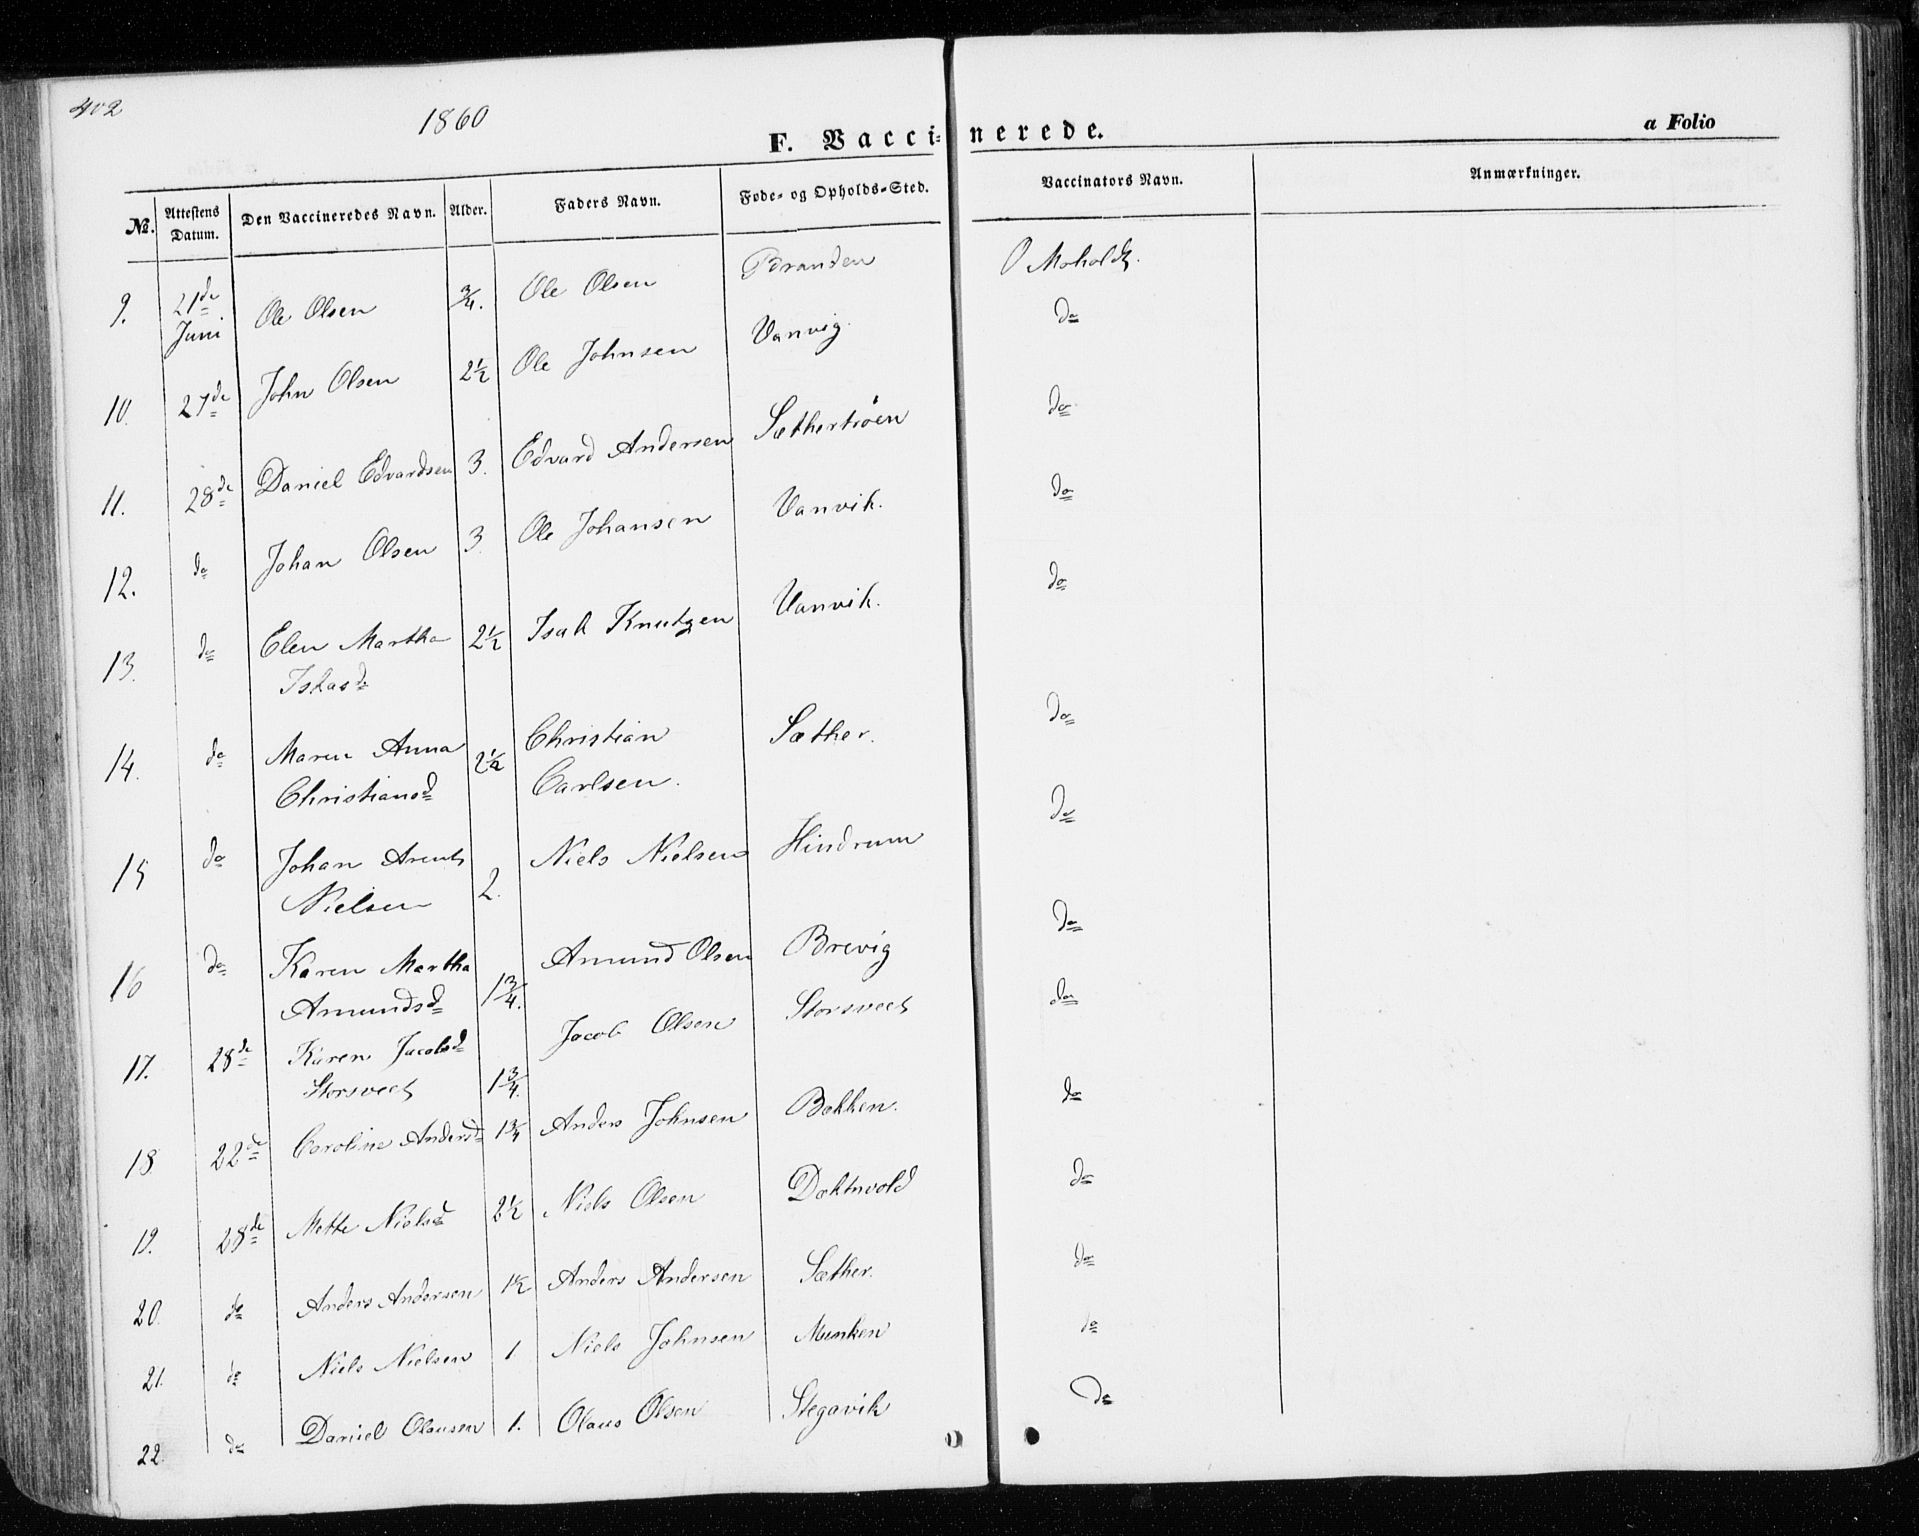 402
1860
F. Vaccinerede.
a Folio
No. Attestens Datum. Den Vaccineredes Navn. Alder. Faders Navn. Føde- og Opholds-Sted. Vaccinators Navn. Anmærkninger.
9. 21de Juni Ole Olsen 3/4. Ole Olsen Branden O Moholdt.
10. 27de John Olsen 2 1/2 Ole Johnsen Vanvig. do
11. 28de Daniel Edvardsen 3. Edvard Andersen Sæthertrøen do
12. do Johan Olsen 3. Ole Johansen Vanvik. do
13. do Elen Martha 2 1/2 Isak Knutzen Vanvik. do
Iskasd
14. do Maren Anna 2 1/2 Christian Sæther. do
Christiansd Carlsen.
15 do Johan Arents 2. Niels Nielsen Hindrum do
Nielsen
16 do Karen Martha 1 3/4. Amund Olsen Brevig do
Amundsd
17. 28de Karen Jacobsd 1 3/4. Jacob Olsen Storsveet do
Storsveet
18 22de Caroline Andersd 1 3/4 Anders Johnsen Bakken. do
19. 28de Mette Nielsd 2 1/2 Niels Olsen do
20. do Anders Andersen 1 1/2 Anders Andersen Sæther. do
21. do Niels Nielsen 1. Niels Johnsen Munken do
22. do Daniel Olausen 1. Olaus Olsen Stegavik do